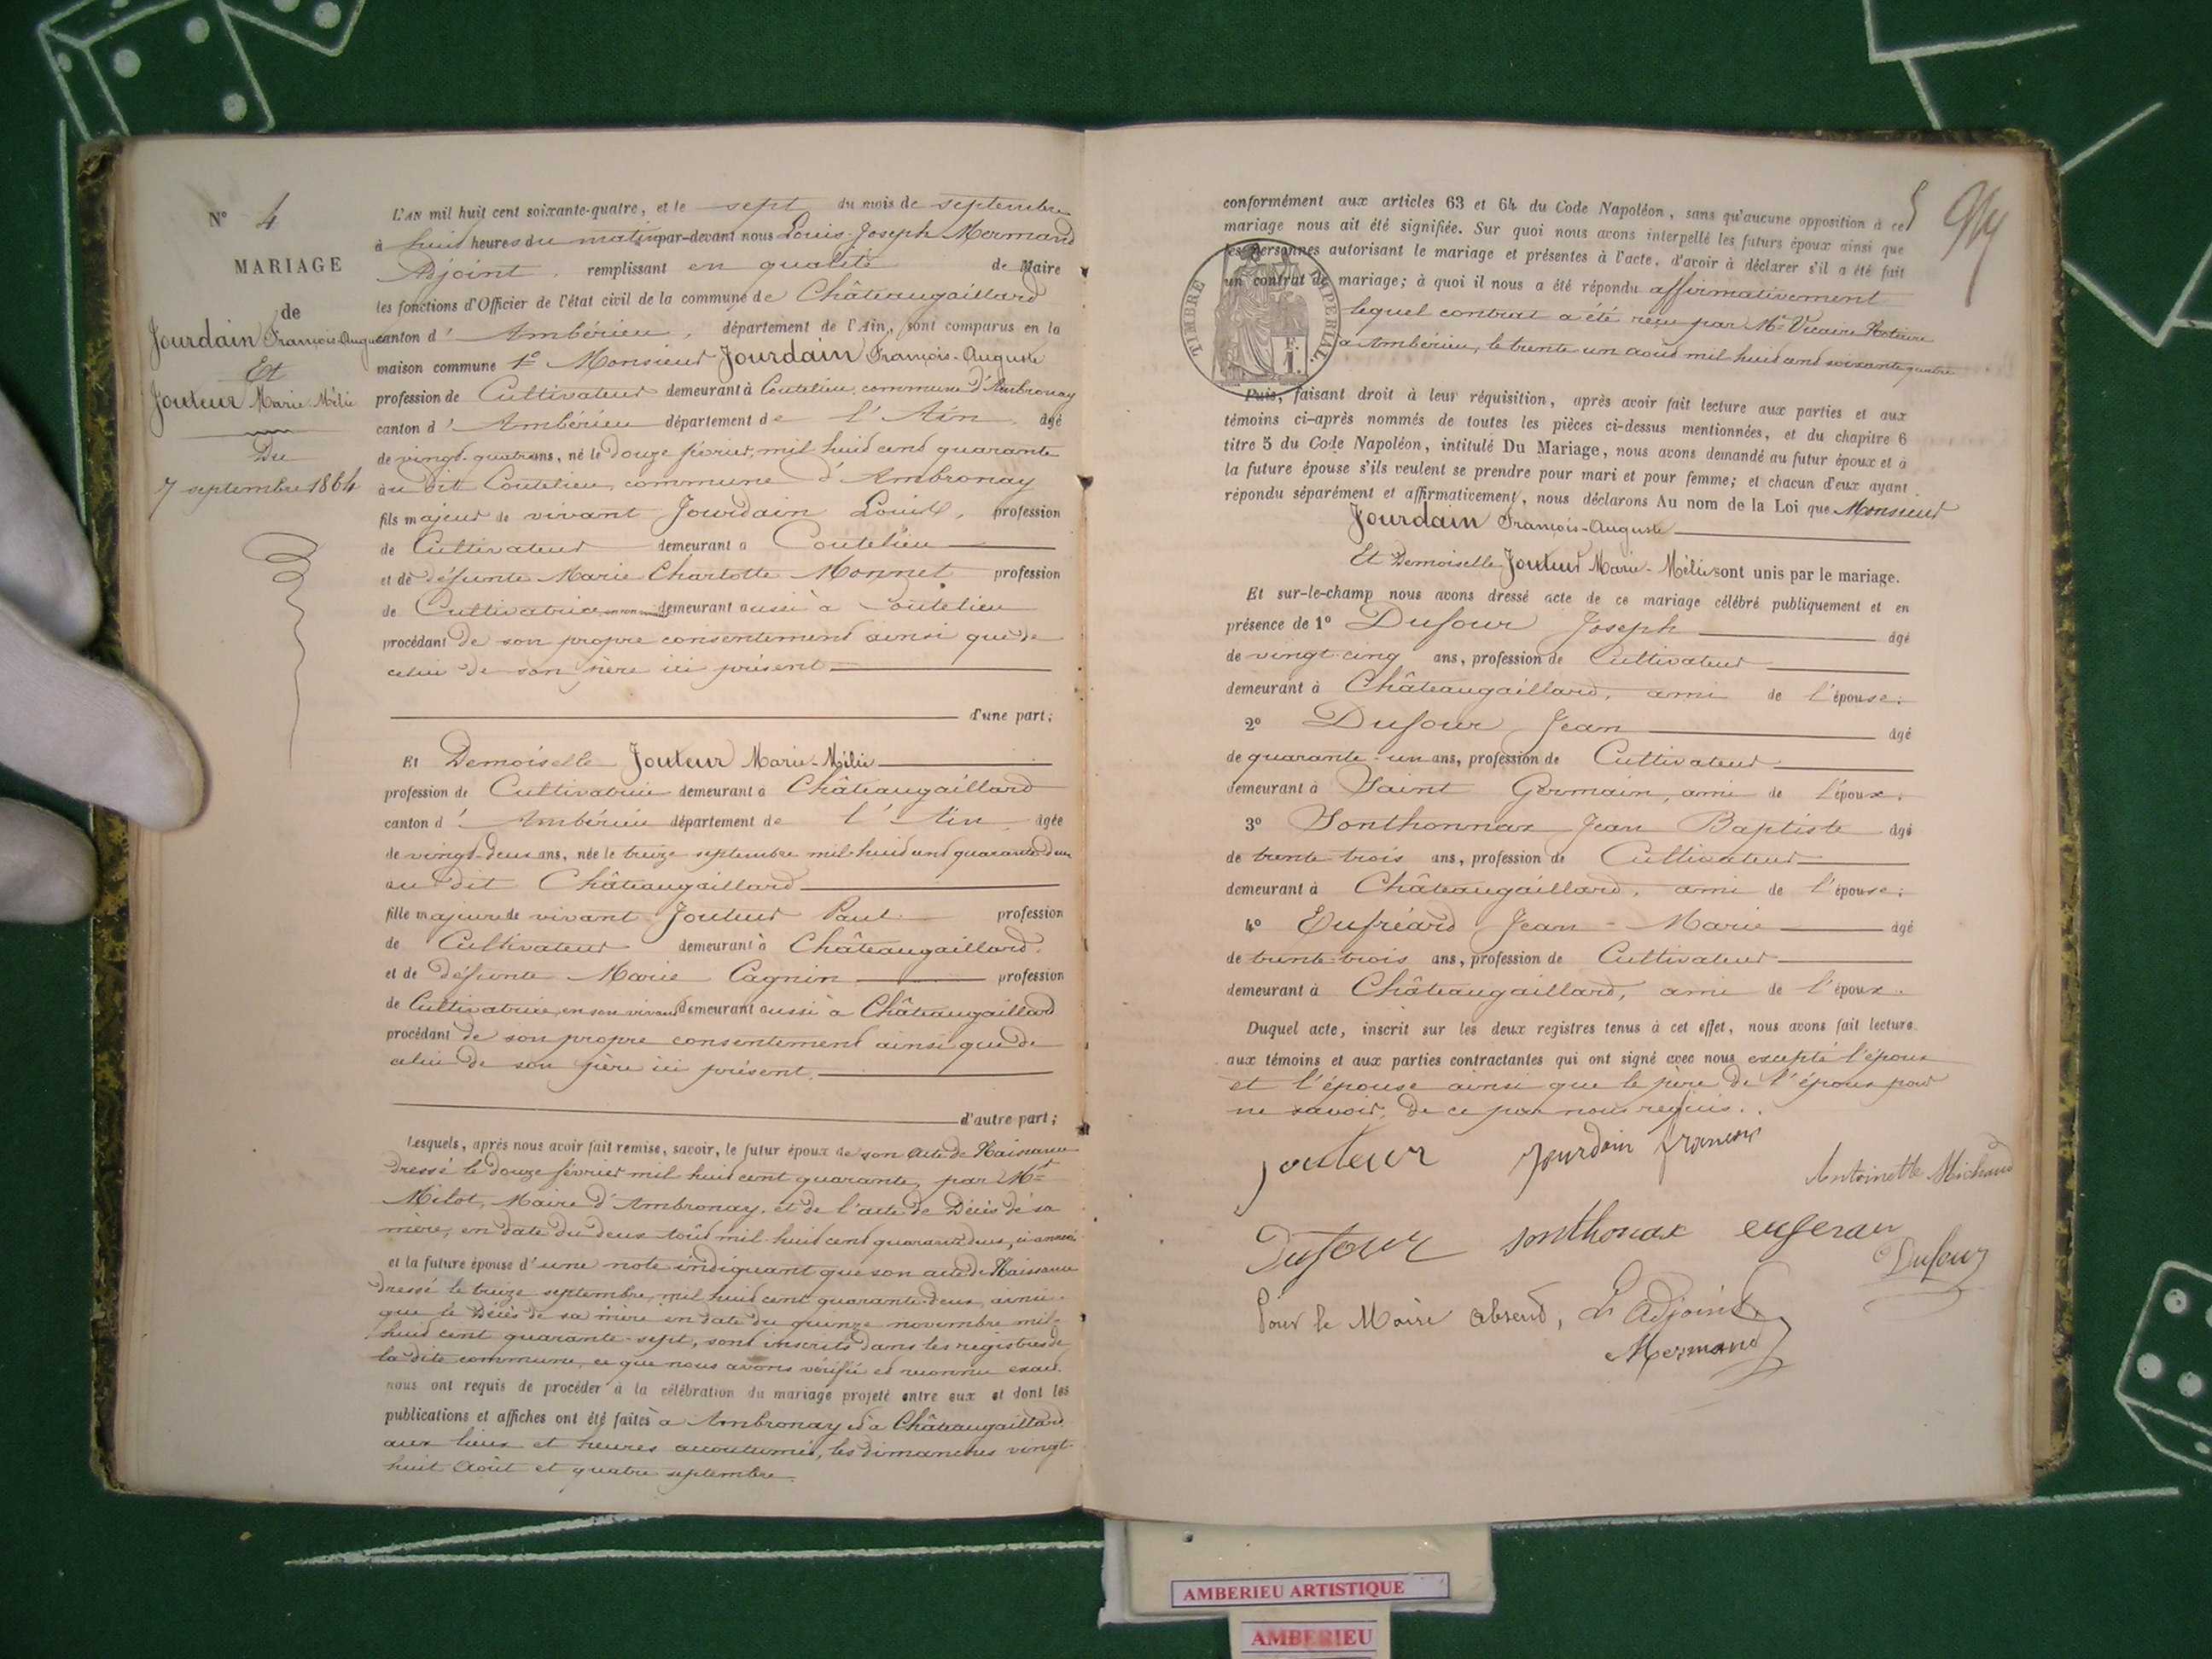 N° 4
MARIAGE
de
Jourdain François-Auguste
Et
Jouteur Marie-Mélie
Du
7 septembre 1864
L'AN mil huit cent soixante-quatre, et le sept du mois de septembre
à huit heures du matin par-devant nous Louis-Joseph Mermand
Adjoint, remplissant en qualité de Maire
les fonctions d'Officier de l'état civil de la commune de Châteaugaillard
canton d'Ambérieu, département de l'Ain, sont comparus en la
maison commune 1° Monsieur Jourdain François-Auguste
profession de Cultivateur demeurant à Coutelieu, commune d'Ambronay
canton d'Ambérieu département de l'Ain, âgé
de vingt-quatre ans, né le douze février, mil huit cent quarante
au dit Coutelieu, commune d'Ambronay
fils majeur de vivant Jourdain Louis, profession
de Cultivateur demeurant à Coutelieu
et de défunte Marie Charlotte Monnet profession
de Cultivatrice demeurant aussi à Coutelieu
procédant de son propre consentement ainsi que de
celui de son père ici présent
d'une part;
Et Demoiselle Jouteur Marie-Mélie
profession de Cultivatrice demeurant à Châteaugaillard
canton d'Ambérieu département de l'Ain, âgée
de vingt-deux ans, née le treize septembre mil-huit cent quarante-deux
au dit Châteaugaillard
fille majeure de vivant Jouteur Paul profession
de Cultivateur demeurant à Châteaugaillard,
et de défunte Marie Cagnin profession
de Cultivatrice, en son vivant demeurant aussi à Châteaugaillard
procédant de son propre consentement ainsi que de
celui de son père ici présent,
d'autre part;
Lesquels, après nous avoir fait remise, savoir, le futur époux de son acte de Naissance
dressé le douze février mil huit cent quarante, par Mr
Milot, Maire d'Ambronay, et de l'acte de Décès de sa
mère, en date du deux août mil-huit cent quarante deux, ci-annexé
et la future épouse d'une note indiquant que son acte de Naissance
dressé le treize septembre, mil huit cent quarante-deux, ainsi
que le Décès de sa mère en date du quinze novembre mil-
huit cent quarante-sept, sont inscrits dans les registres de
la dite commune, ce que nous avons vérifié et reconnu exact.
nous ont requis de procéder à la célébration du mariage projeté entre eux et dont les
publications et affiches ont été faites à Ambronay et à Châteaugaillard
aux lieux et heures accoutumés, les dimanches vingt-
huit Août et quatre septembre.
5
conformément aux articles 63 et 64 du Code Napoléon, sans qu'aucune opposition à ce
mariage nous ait été signifiée. Sur quoi nous avons interpellé les futurs époux ainsi que
les personnes autorisant le mariage et présentes à l'acte, d'avoir à déclarer s'il a été fait
un contrat de mariage; à quoi il nous a été répondu affirmativement
lequel contrat a été reçu par Me Vicaire Notaire
à Ambérieu, le trente-un août mil huit cent soixante quatre
TIMBRE IMPERIAL.
1 F.
Puis, faisant droit à leur réquisition, après avoir fait lecture aux parties et aux
témoins ci-après nommés de toutes les pièces ci-dessus mentionnées, et du chapitre 6
titre 5 du Code Napoléon, intitulé Du Mariage, nous avons demandé au futur époux et à
la future épouse s'ils veulent se prendre pour mari et pour femme; et chacun d'eux ayant
répondu séparément et affirmativement, nous déclarons Au nom de la Loi que Monsieur
Jourdain François-Auguste
Et Demoiselle Jouteur Marie-Mélie sont unis par le mariage.
Et sur-le-champ nous avons dressé acte de ce mariage célébré publiquement et en
présence de 1° Dufour Joseph âgé
de vingt-cinq ans, profession de Cultivateur
demeurant à Châteaugaillard, ami de l'épouse;
2° Dufour Jean âgé
de quarante-un ans, profession de Cultivateur
demeurant à Saint Germain, ami de l'époux;
3° Sonthonnax Jean Baptiste âgé
de trente trois ans, profession de Cultivateur
demeurant à Châteaugaillard, ami de l'épouse;
4° Eufréard Jean-Marie âgé
de trente-trois ans, profession de Cultivateur
demeurant à Châteaugaillard, ami de l'époux.
Duquel acte, inscrit sur les deux registres tenus à cet effet, nous avons fait lecture
aux témoins et aux parties contractantes qui ont signé avec nous excepté l'époux
et l'épouse ainsi que le père de l'époux pour
ne savoir, de ce par nous requis.
Jouteur Jourdain françois Antoinette Michaud
Dufour Sonthonax Dufour
Pour le Maire absent, L'Adjoint
Mermand
AMBERIEU ARTISTIQUE
AMBERIEU